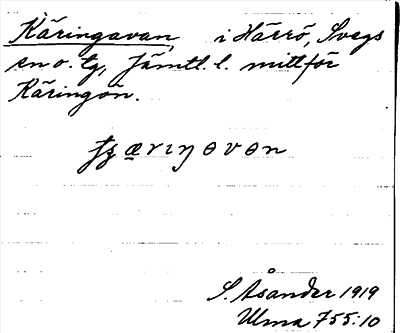 Käringavan, i Härrö, Svegs
sn o. tg, Jämtl. l. mittför
Käringön.
ʃʒærıŋɵvɵn
S. Åsander 1919
Ulma 755:10